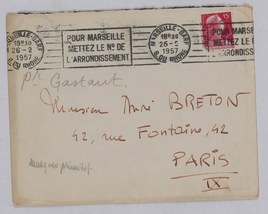 MARSEILLE-GARE
18H30
26-2
1957
B. DU RHONE
POUR MARSEILLE
METTEZ LE No DE
L'ARRONDISSEMENT
MARSEILLE-GARE
18H30
26-2
1957
B. DU RHONE
POUR MARSEILLE
METTEZ LE No
L'ARRONDISS
Pr Gastaut.
Monsieur André BRETON
42, rue Fontaine, 42
PARIS
IX